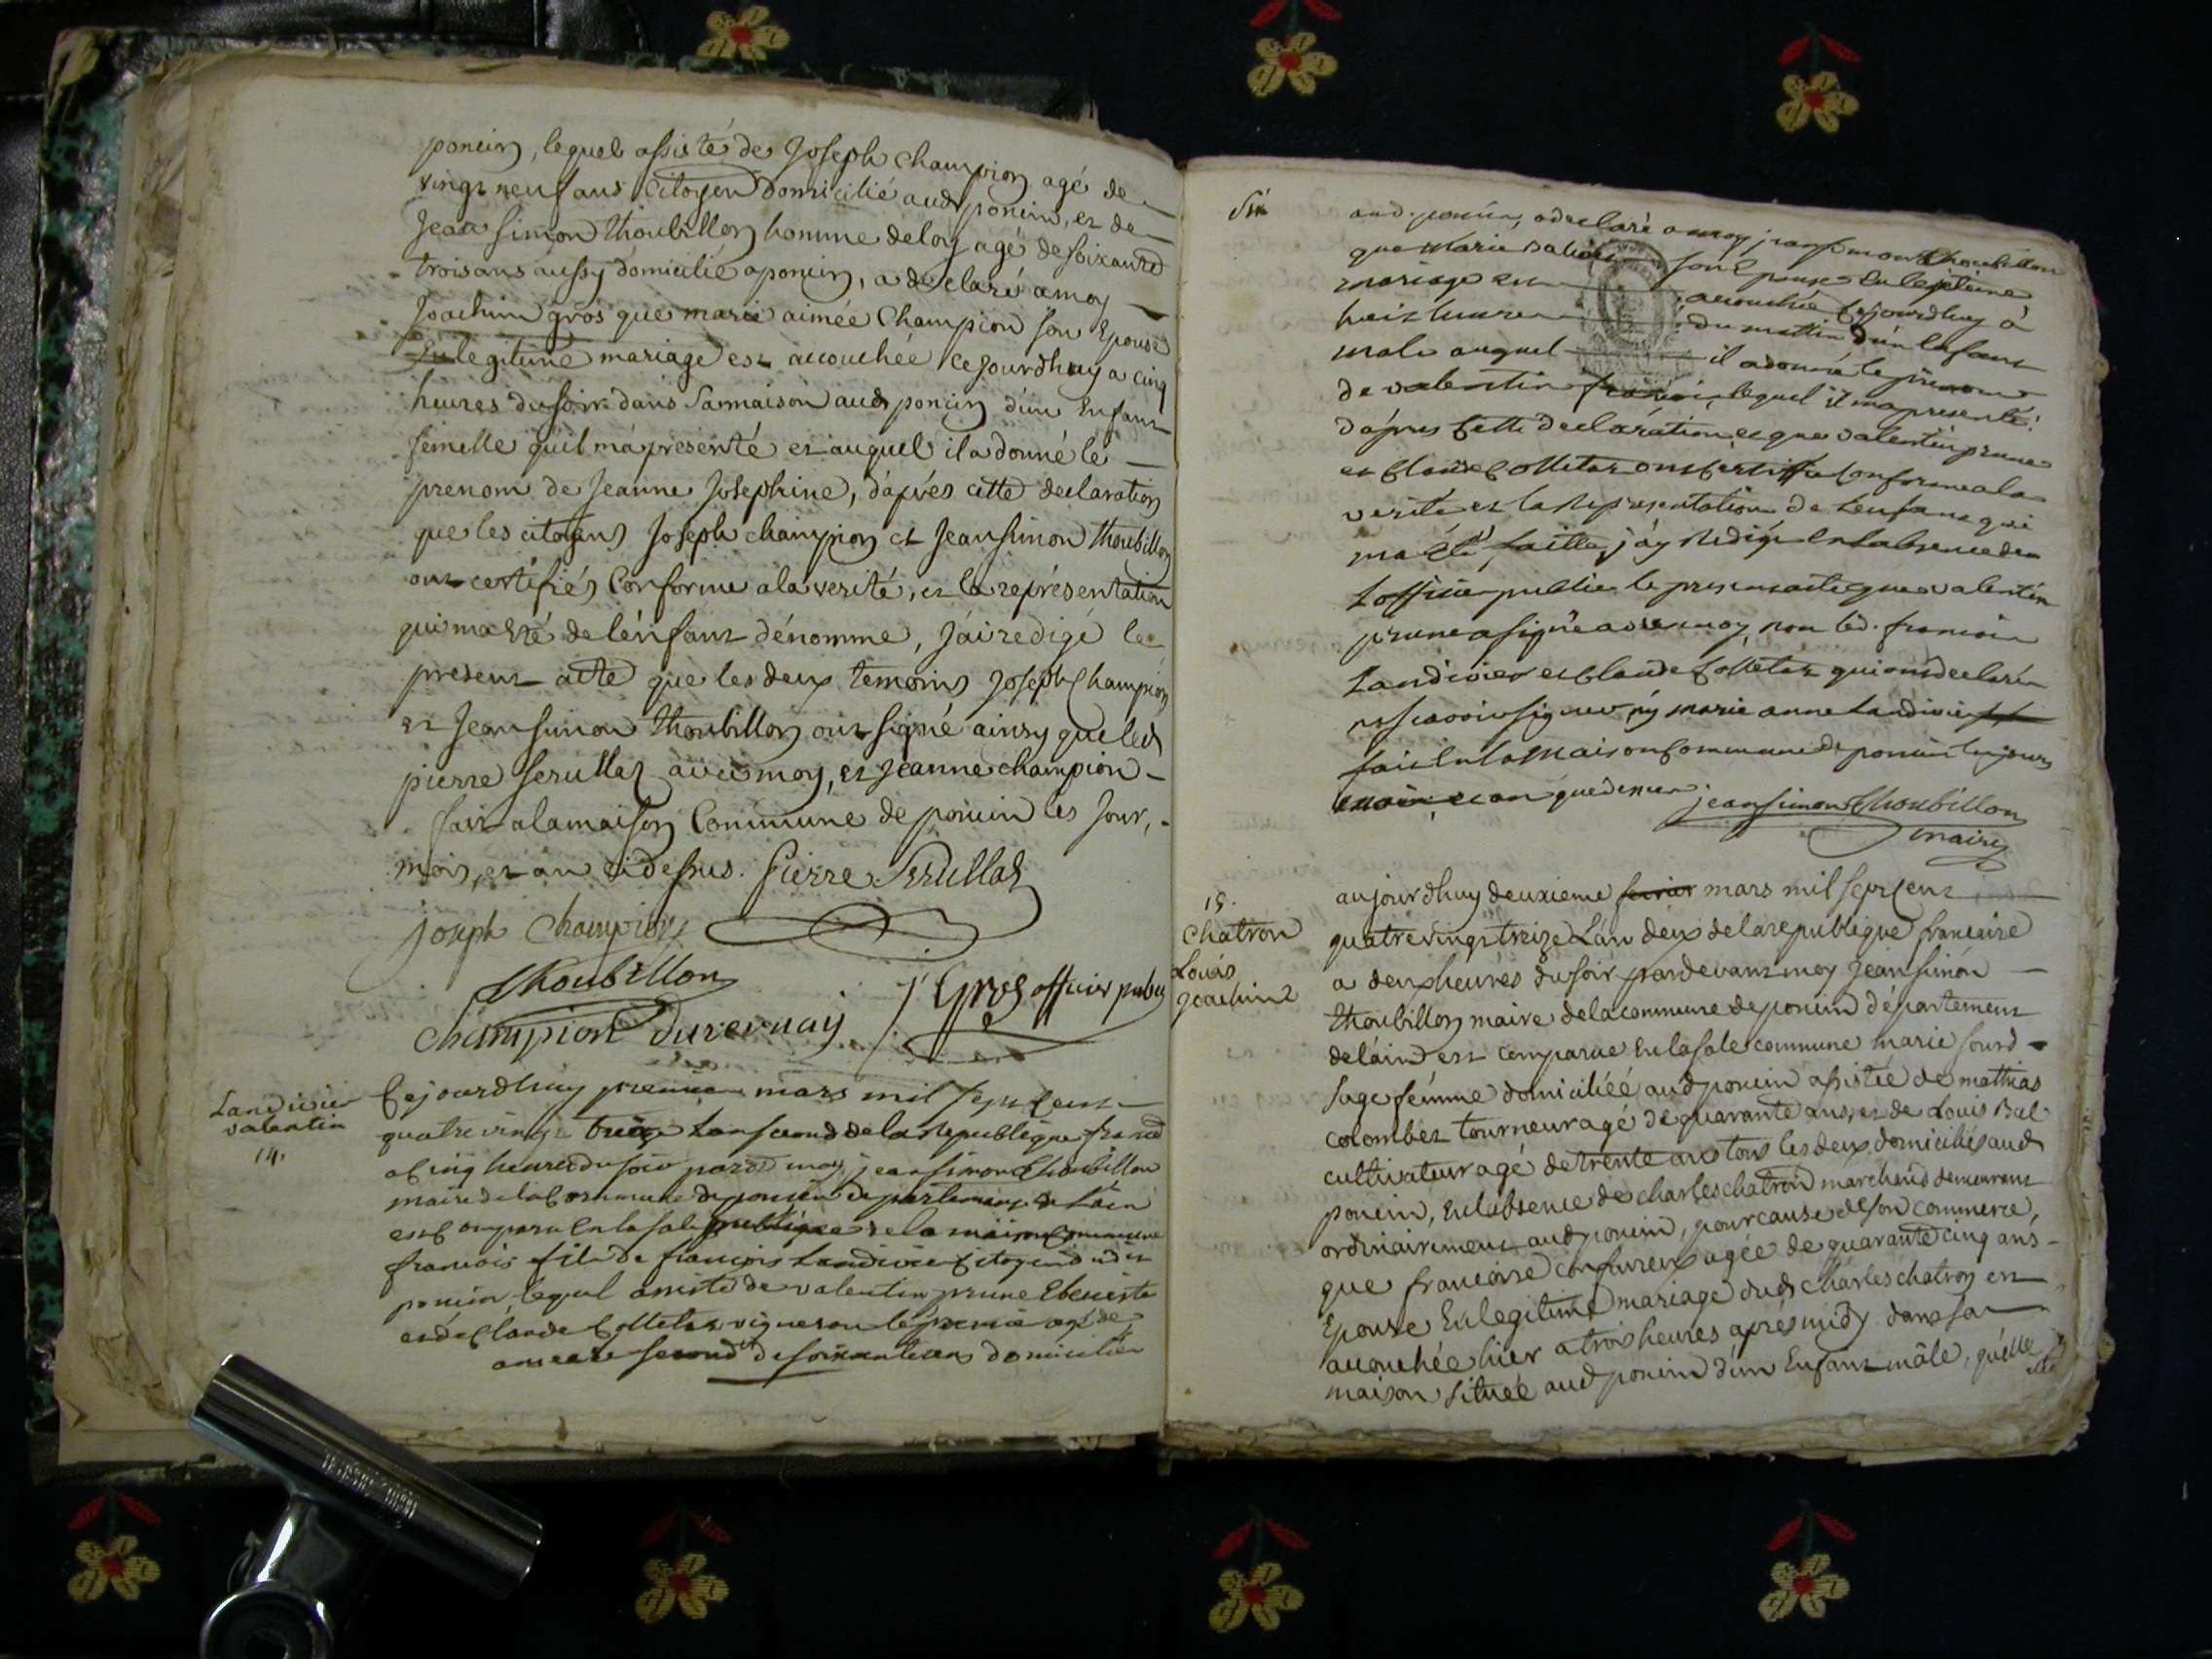 poncin, lequel assisté de Joseph champion agé de
vingt neuf ans citoyen domicilié aud poncin, et de
Jean simon thoubillon homme de loy agé de soixante
trois ans aussy domicilié a poncin, a declaré a moy
Joachim gros que marie aimée Champion son Epouse
En legitime mariage est accouchée ce jourdhuy a cinq
heures du soir dans sa maison aud poncin d'un Enfant
femelle qu'il m'a presenté et auquel il a donné le
prenom de Jeanne Josephine, d'après cette declaration
que les citoyens Joseph champion et Jean simon thoubillon
ont certifiés Conforme a la verité, et la représentation
qui m'a Eté de l'énfant dénommé, J'ai redigé le
present acte que les deux temoins Joseph Champion
et Jean simon thoubillon ont signé ainsy que led
pierre serullaz avec moy, et Jeanne champion
fait a la maison Commune de poncin les Jour,
mois, et an ci dessus. Pierre Serullaz
joseph Champion
Thoubillon
J Gros officier public
Champion duvernay
Landivier
valentin
14.
Cejourdhuy premier mars mil sept cent
quatre vingt treize Lan second de la Republique franc
a cinq heures du soir par d moy jean simon Thoubillon
maire de la Commune de poncin departement de Lain
est comparu En la sale publique de la maison Commune
francois fils de francois Landivier Citoyen dud
poncin lequel assisté de valentin prune Ebeniste
et de Claude Colletaz vigneron le premier agé de
ans et le second de soixante ans domiciliés
Six
aud. poncin, a declaré a moy jean simon Thoubillon
que Marie son Epouse En legitime
mariage est accouchée Cejourdhuy à
heit heures du mattin d'un Enfant
male auquel il a donné le prenom
de valentin francois, lequel il m'a presenté:
d'apres Cette declaration que valentin prune
et Claude Colletaz ont Certiffié Conforme a la
verité et la Representation de Lenfant qui
ma Eté faitte, j'ay Redigé En Labsence de
Lofficier public le present acte que valentin
prune a signé avec moy, non led. francois
Landivier et Claude Colletaz qui ont declaré n
scavoir signer ny marie anne Landivier
fait En la Maison Commune de poncin les jours
mois et an que dessus jean simon Thoubillon
maire
15.
Chatron
Louis
Joachim
aujourdhuy deuxieme fevrier mars mil sept cent
quatre vingt treize L'an deux de la republique francaise
a deux heures du soir pardevant moy Jean simon
thoubillon maire de la commune de poncin département
de láin est comparue En la sale commune marie sourd
sage femme domiciliéé aud poncin assistée de mathias
colombet tourneur agé de quarante ans, et de Louis Bal
cultivateur agé de trente ans tous les deux domiciliés aud
poncin, En labsence de charles chatron marchand demeurant
ordinairement aud poncin, pour cause de son commerce,
que francoise agée de quarante cinq ans
Epouse En legitime mariage dud Charles chatron est
accouchée hier a trois heures après midy dans sa
maison située aud poncin d'un Enfant mâle, qu'elle